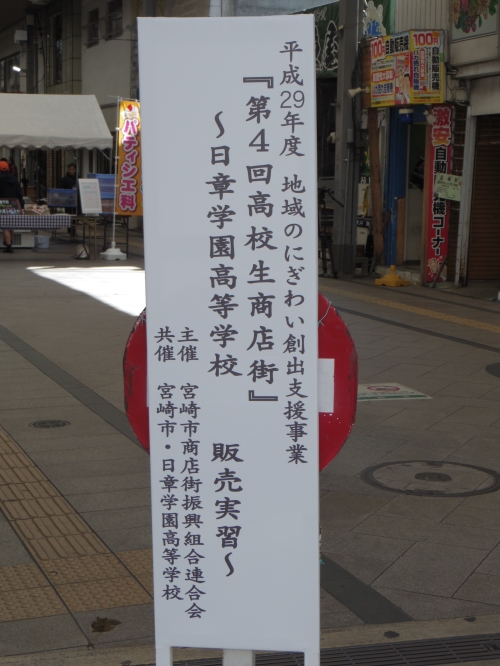 平成29年度 地域のにぎわい創出支援事業
『第4回高校生商店街』
～日章学園高等学校 販売実習～
主催 宮崎市商店街振興組合連合会
共催 宮崎市・日章学園高等学校
パティシエ科
100円
自動販売機
100円
激安自動
機コーナー